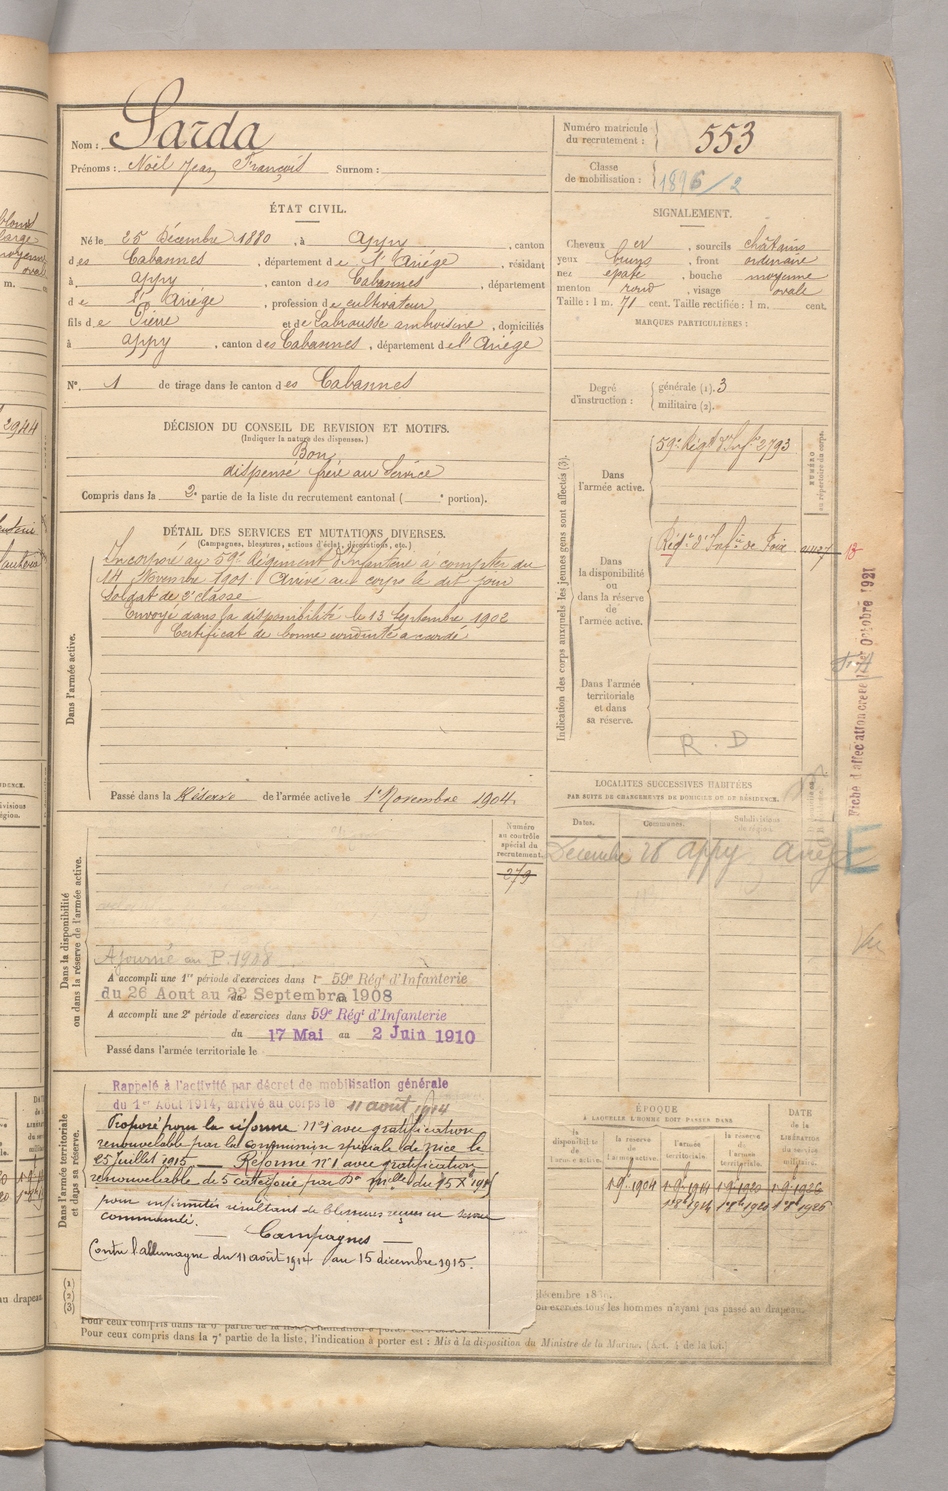 Nom : Sarda
Prénoms : Noël Jean François Surnom :
Numéro matricule du recrutement : 553
Classe de mobilisation : 1896/2
ÉTAT CIVIL.
Né le 25 Décembre 1880, à Appy, canton
des Cabannes, département de l'Ariège, résidant
à Appy, canton des Cabannes, département
de l'Ariège, profession de cultivateur
fils de Pierre et de Labrousse ambroisine, domiciliés
à Appy, canton des Cabannes, département de l'Ariège
N°. 1 de tirage dans le canton des Cabannes
SIGNALEMENT.
Cheveux et, sourcils châtains
yeux bruns, front ordinaire
nez épaté, bouche moyenne
menton rond, visage ovale
Taille : 1 m. 71 cent. Taille rectifiée : 1 m. cent.
MARQUES PARTICULIÈRES :
Degré d'instruction : générale (1). 3
militaire (2).
DÉCISION DU CONSEIL DE REVISION ET MOTIFS.
(Indiquer la nature des dispenses.)
Bon
dispensé frère au Service
Compris dans la 2e partie de la liste du recrutement cantonal ( e portion).
DÉTAIL DES SERVICES ET MUTATIONS DIVERSES.
(Campagnes, blessures, actions d'éclat, décorations, etc.)
Dans l'armée active.
Incorporé au 59e Régiment d'Infanterie à compter du
14 Novembre 1901 Arrivé au corps le dit jour
Soldat de 2e classe
Envoyé dans la disponibilité le 13 Septembre 1902
Certificat de bonne conduite accordé
Passé dans la Réserve de l'armée active le 1er Novembre 1904.
Indication des corps auxquels les jeunes gens sont affectés (3).
NUMÉRO
au répertoire du corps.
Dans l'armée active.
59e Régt d'Infie 2793
Dans la disponibilité ou dans la réserve de l'armée active.
Régt d'Infie de Foix
Dans l'armée territoriale et dans sa réserve.
R. D
Fiche d'affectation créée 1er Octobre 1921
LOCALITÉS SUCCESSIVES HABITÉES
PAR SUITE DE CHANGEMENTS DE DOMICILE OU DE RÉSIDENCE.
Dates. Communes. Subdivisions de région.
Décembre 28 Appy Ariège
E
Vu
Dans la disponibilité ou dans la réserve de l'armée active.
Numéro au contrôle spécial du recrutement.
279
Ajourné au P. 1908
A accompli une 1re période d'exercices dans le 59e Régt d'Infanterie
du 26 Aout au 22 Septembre 1908
A accompli une 2e période d'exercices dans 59e Régt d'Infanterie
du 17 Mai au 2 Juin 1910
Passé dans l'armée territoriale le
Dans l'armée territoriale et dans sa réserve.
Rappelé à l'activité par décret de mobilisation générale
du 1er Août 1914, arrivé au corps le 11 août 1914
Proposé pour la réforme n°1 avec gratification
renouvelable par la commission spéciale de Nice le
25 Juillet 1915 — Réformé n°1 avec gratification
renouvelable de 5 catégorie par Don Mielle du 15 Xe 1915
pour infirmités résultant de blessures reçues en service
commandé.
— Campagnes —
Contre l'allemagne du 11 août 1914 au 15 décembre 1915.
ÉPOQUE
À LAQUELLE L'HOMME DOIT PASSER DANS
DATE de la LIBÉRATION du service militaire.
la disponibilité de l'armée active. la réserve de l'armée active. l'armée territoriale. la réserve de l'armée territoriale.
1-9-1904 1-9-1914 1-9-1920 1-9-1926
1er 8bre 1914 1er 8bre 1920 1er 8bre 1926
(1)
(2)
(3)
décembre 18
exercés tous les hommes n'ayant pas passé au drapeau.
Pour ceux compris dans la 7e partie de la liste, l'indication à porter est : Mis à la disposition du Ministre de la Marine. (Art. 4 de la loi.)